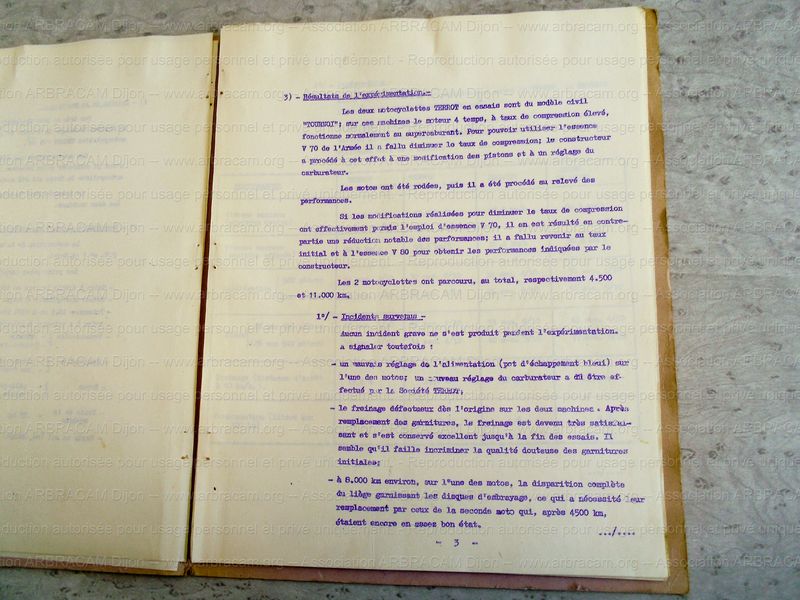 3) - Résultats de l'expérimentation.-
Les deux motocyclettes TERROT en essais sont du modèle civil
"TOURNOI"; sur ces machines le moteur 4 temps, à taux de compression élevé,
fonctionne normalement au supercarburant. Pour pouvoir utiliser l'essence
V 70 de l'Armée il a fallu diminuer le taux de compression; le constructeur
a procédé à cet effet à une modification des pistons et à un réglage du
carburateur.
Les motos ont été rodées, puis il a été procédé au relevé des
performances.
Si les modifications réalisées pour diminuer le taux de compression
ont effectivement permis l'emploi d'essence V 70, il en est résulté en contre-
partie une réduction notable des performances; il a fallu revenir au taux
initial et à l'essence V 80 pour obtenir les performances indiquées par le
constructeur.
Les 2 motocyclettes ont parcouru, au total, respectivement 4.500
et 11.000 km.
1°/ - Incidents survenus -
Aucun incident grave ne s'est produit pendant l'expérimentation.
A signaler toutefois :
- un mauvais réglage de l'alimentation (pot d'échappement bleui) sur
l'une des motos; un nouveau réglage du carburateur a dû être ef-
fectué par la Société TERROT;
- le freinage défectueux dès l'origine sur les deux machines. Après
remplacement des garnitures, le freinage est devenu très satisfai-
sant et s'est conservé excellent jusqu'à la fin des essais. Il
semble qu'il faille incriminer la qualité douteuse des garnitures
initiales;
- à 8.000 km environ, sur l'une des motos, la disparition complète
du liège garnissant les disques d'embrayage, ce qui a nécessité leur
remplacement par ceux de la seconde moto qui, après 4500 km,
étaient encore en assez bon état.
.../....
- 3 -